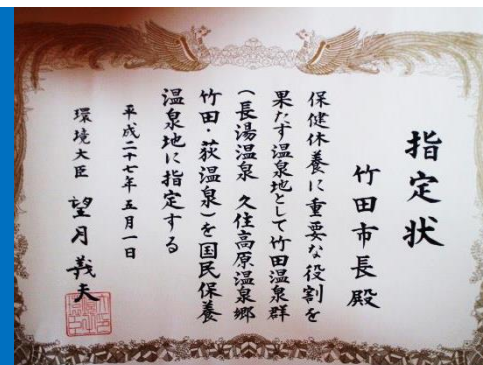 指定状
竹田市長殿
保健休養に重要な役割を
果たす温泉地として竹田温泉群
(長湯温泉 久住高原温泉郷
竹田・荻温泉)を国民保養
温泉地に指定する
平成二十七年五月一日
環境大臣 望月義夫